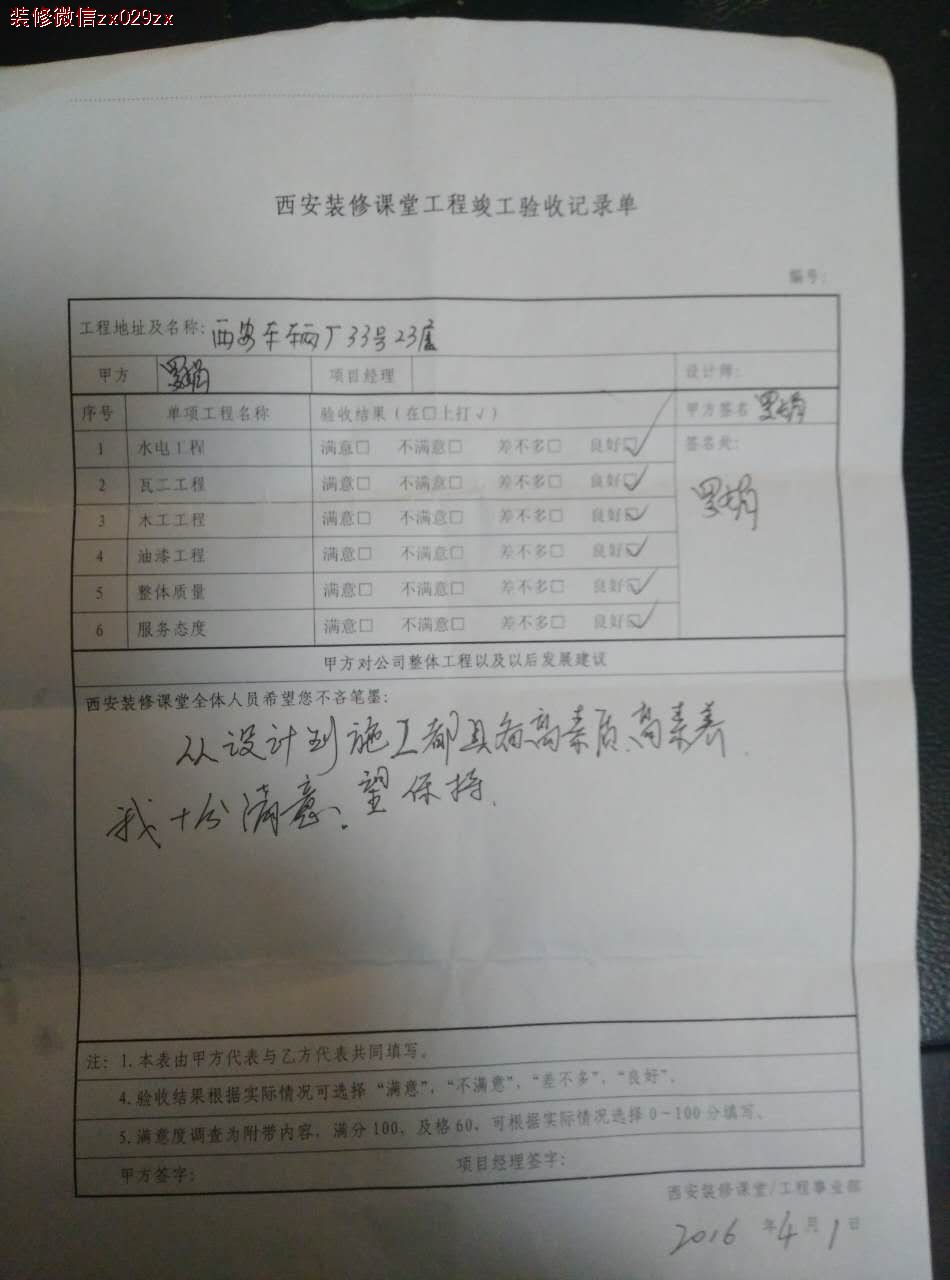 装修微信zx029zx
西安装修课堂工程竣工验收记录单
编号:
工程地址及名称: 西安车辆厂33号23层
甲方 项目经理 设计师:
序号 单项工程名称 验收结果(在□上打√) 甲方签名
1 水电工程 满意□ 不满意□ 差不多□ 良好☑ 签名处:
2 瓦工工程 满意□ 不满意□ 差不多□ 良好☑
3 木工工程 满意□ 不满意□ 差不多□ 良好☑
4 油漆工程 满意□ 不满意□ 差不多□ 良好☑
5 整体质量 满意□ 不满意□ 差不多□ 良好☑
6 服务态度 满意□ 不满意□ 差不多□ 良好☑
甲方对公司整体工程以及以后发展建议
西安装修课堂全体人员希望您不吝笔墨:
从设计到施工都具备高素质、高素养.
我十分满意、望保持.
注: 1.本表由甲方代表与乙方代表共同填写。
4.验收结果根据实际情况可选择“满意”,“不满意”,“差不多”,“良好”。
5.满意度调查为附带内容,满分100,及格60,可根据实际情况选择0-100分填写。
甲方签字: 项目经理签字:
西安装修课堂/工程事业部
2016 年 4 月 1 日